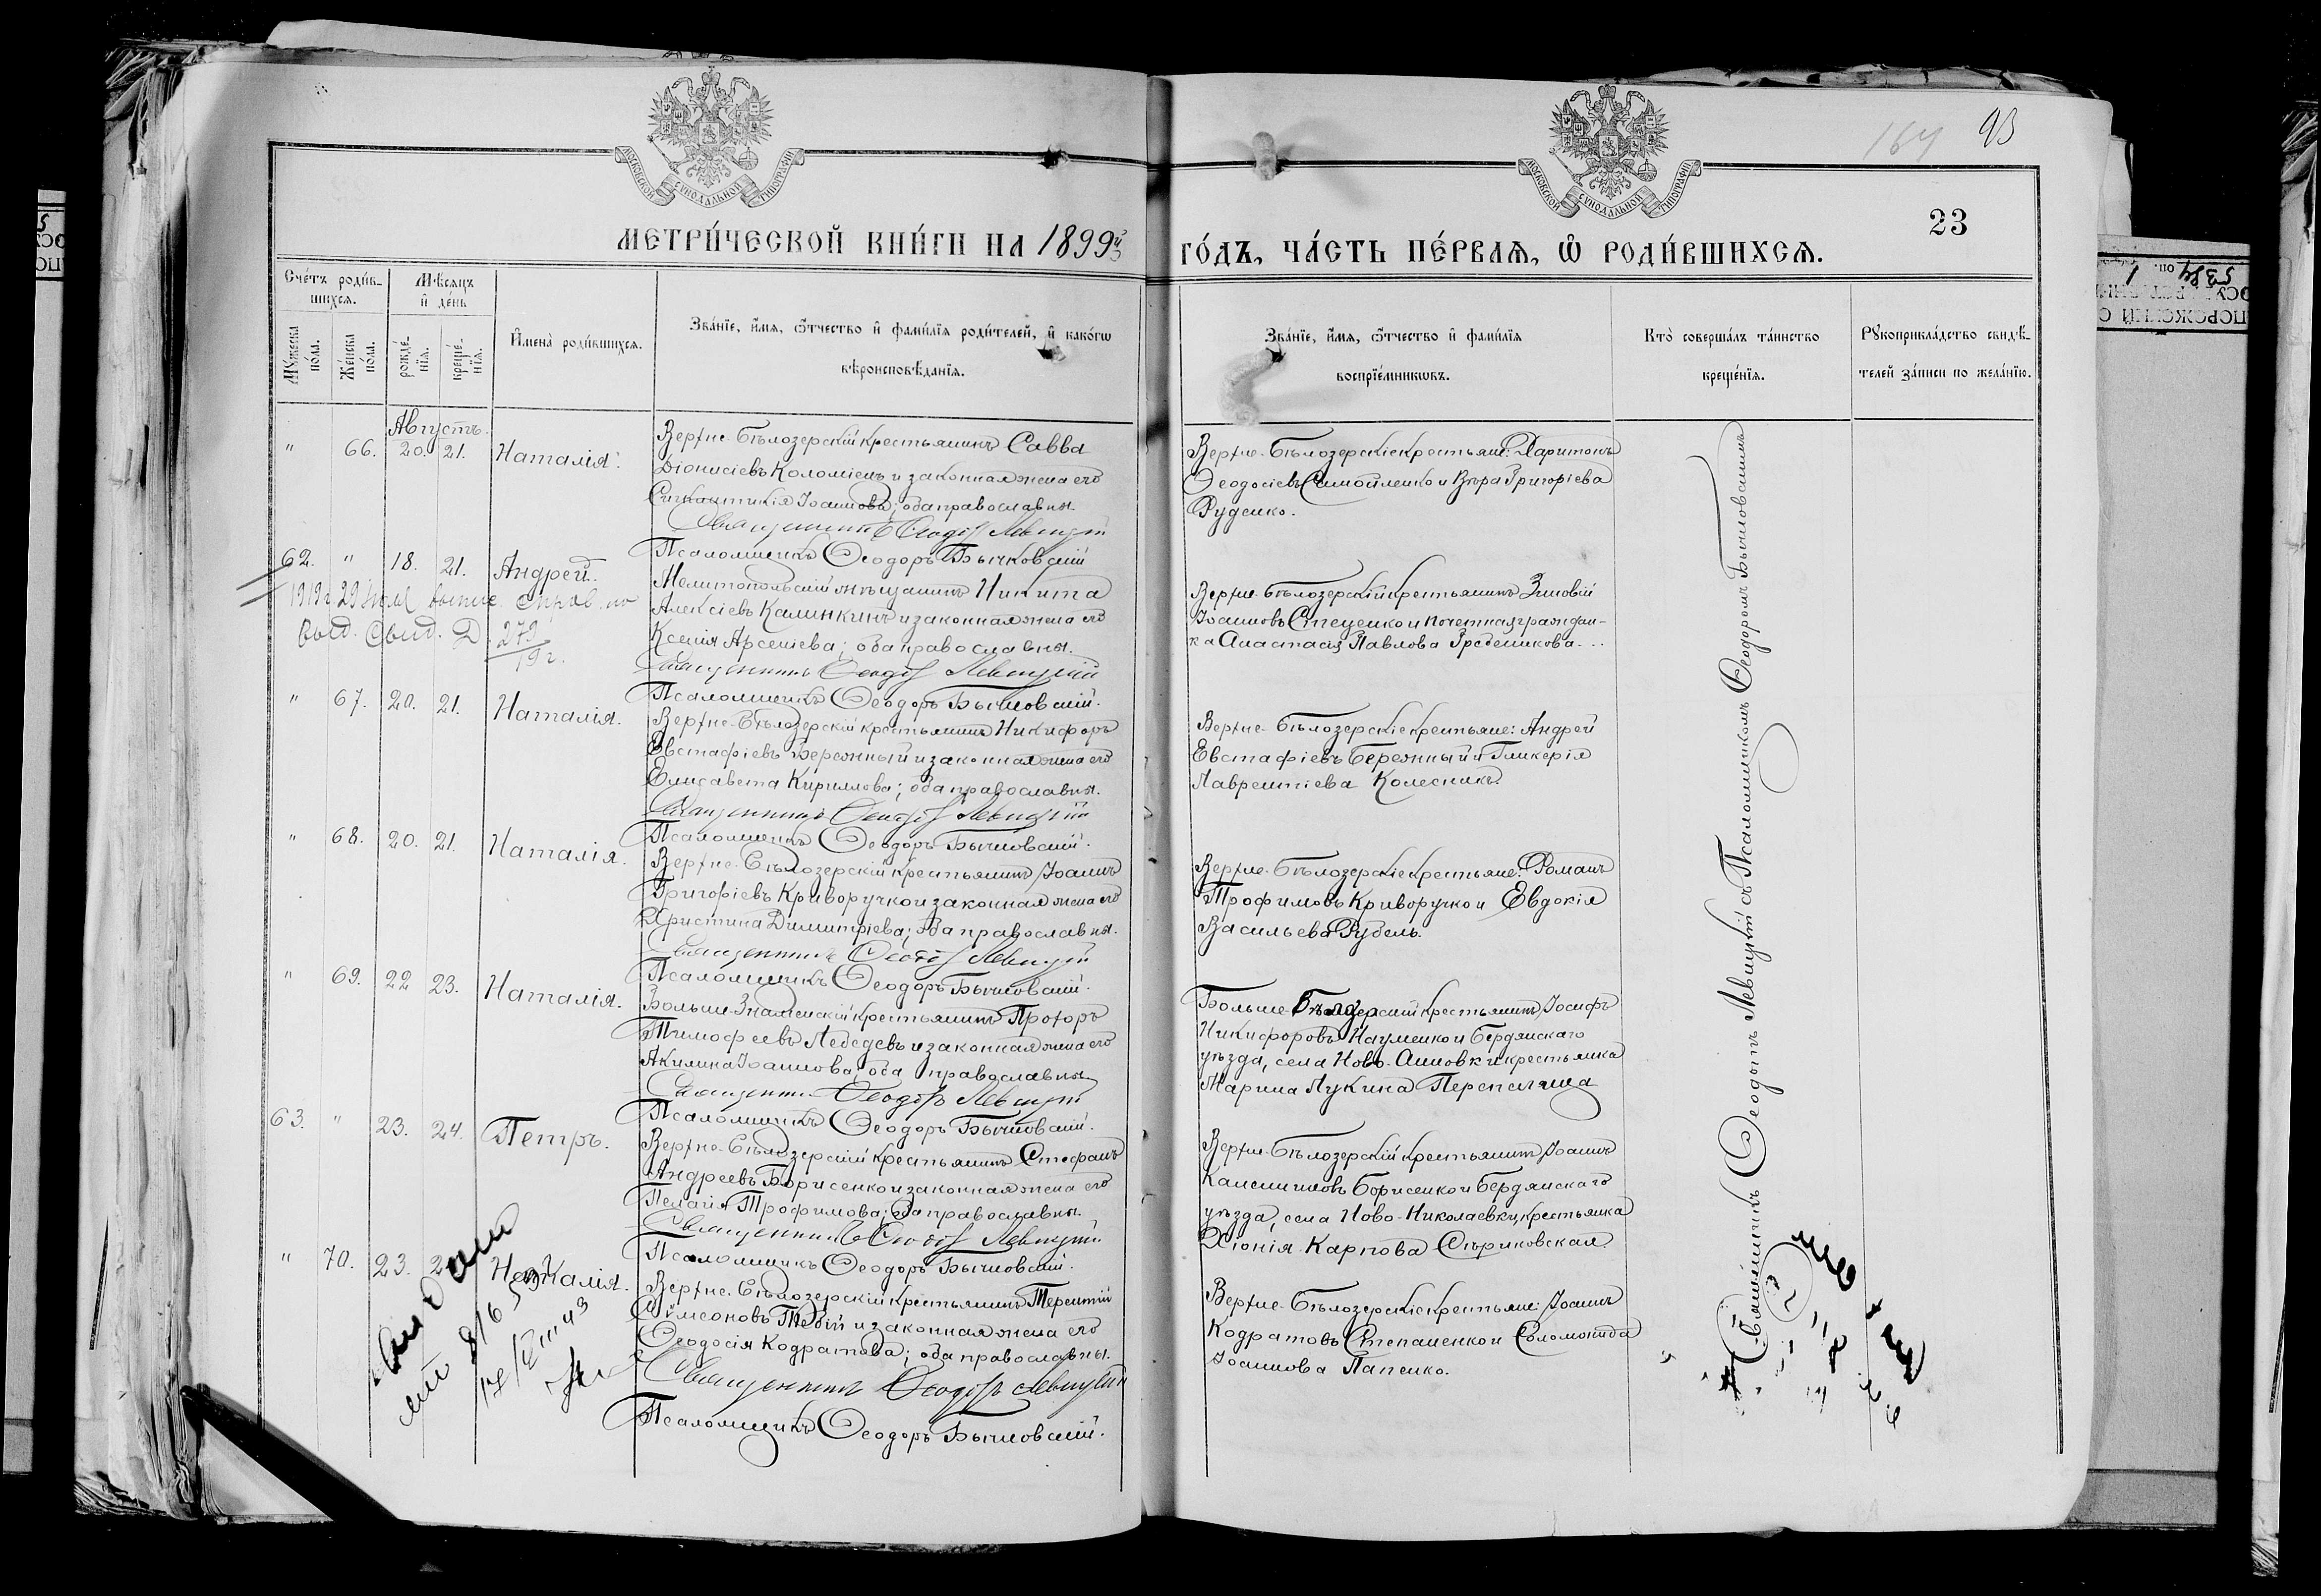 МОСКОВСКОЙ СУНОДАЛЬНОЙ ТИПОГРАФІИ
МОСКОВСКОЙ СУНОДАЛЬНОЙ ТИПОГРАФІИ
164 93
23
МЕТРИ́ЧЕСКОЙ КНИ́ГИ НА 1899й
ГО́ДЪ, ЧА́СТЬ ПЕ́РВАЯ, Ѡ РОДИ́ВШИХСЯ.
Сче́тъ роди́вшихся.
Мѣ́сяцъ и де́нь
Му́жеска по́ла.
Же́нска по́ла.
рожде́нїя.
креще́нїя.
И҆мена̀ роди́вшихся.
Зва́нїе, и҆́мя, ѻ҆́тчество и҆ фами́лїя роди́телей, и҆ како́гѡ
вѣроисповѣ́данїя.
Зва́нїе, и҆́мя, ѻ҆́тчество и҆ фами́лїя
воспрїе́мникѡвъ.
Кто̀ соверша́лъ та́инство
креще́нїя.
Рукоприкла́дство свидѣ́-
телей за́писи по жела́нїю.
Августъ.
" 66. 20. 21. Наталія.
Верхне-Бѣлозерскій крестьянинъ Савва
Діонисіевъ Коломіецъ и законная жена его
Синклитикія Іоаннова; оба православны.
Священникъ Ѳеодоръ Левицкій
Псаломщикъ Ѳеодоръ Бычковскій
Верхне-Бѣлозерскіе крестьяне: Харитонъ
Ѳеодосіевъ Самойленко и Вѣра Григоріева
Руденко.
62. " 18. 21. Андрей.
1919г 29
выд. свид. 279
19г.
Мелитопольскій мѣщанинъ Никита
Алексіевъ Калинкинъ и законная жена его
Ксенія Арсеніева; оба православны.
Священникъ Ѳеодоръ Левицкій
Псаломщикъ Ѳеодоръ Бычковскій.
Верхне-Бѣлозерскій крестьянинъ Зиновій
Іоанновъ Стеценко и почетная граждан-
ка Анастасія Павлова Гребенникова...
" 67. 20. 21. Наталія.
Верхне-Бѣлозерскій крестьянинъ Никифоръ
Евстафіевъ Бережный и законная жена его
Елисавета Кириллова; оба православны.
Священникъ Ѳеодоръ Левицкій
Псаломщикъ Ѳеодоръ Бычковскій.
Верхне-Бѣлозерскіе крестьяне: Андрей
Евстафіевъ Бережный и Гликерія
Лаврентіева Колесникъ.
" 68. 20. 21. Наталія.
Верхне-Бѣлозерскій крестьянинъ Іоаннъ
Григоріевъ Криворучко и законная жена его
Христина Димитріева; оба православны.
Священникъ Ѳеодоръ Левицкій
Псаломщикъ Ѳеодоръ Бычковскій.
Верхне-Бѣлозерскіе крестьяне: Романъ
Трофимовъ Криворучко и Евдокія
Васильева Рубель.
" 69. 22 23. Наталія.
Больше-Знаменскій крестьянинъ Прохоръ
Тимофеевъ Лебедевъ и законная жена его
Акилина Іоаннова; оба православны.
Священникъ Ѳеодоръ Левицкій
Псаломщикъ Ѳеодоръ Бычковскій.
Больше-Бѣлозерскій крестьянинъ Іосифъ
Никифоровъ Науменко и Бердянскаго
уѣзда, села Ново-Анновки крестьянка
Марина Лукина Перепилица
63. " 23. 24. Петръ.
Верхне-Бѣлозерскій крестьянинъ Стефанъ
Андреевъ Борисенко и законная жена его
Пелагія Трофимова; оба православны.
Священникъ Ѳеодоръ Левицкій
Псаломщикъ Ѳеодоръ Бычковскій.
Верхне-Бѣлозерскій крестьянинъ Іоаннъ
Борисенко и Бердянскаго
уѣзда, села Ново-Николаевки, крестьянка
Хіонія Карпова Сѣриковская.
" 70. 23. Наталія.
Верхне-Бѣлозерскій крестьянинъ Терентій
Симеоновъ и законная жена его
Ѳеодосія Кодратова; оба православны.
Священникъ Ѳеодоръ Левицкій
Псаломщикъ Ѳеодоръ Бычковскій.
Верхне-Бѣлозерскіе крестьяне: Іоаннъ
Кодратовъ Степаненко и Соломонида
Іоаннова Папенко.
Священникъ Ѳеодотъ Левицкій съ Псаломщикомъ Ѳеодоромъ Бычковскимъ